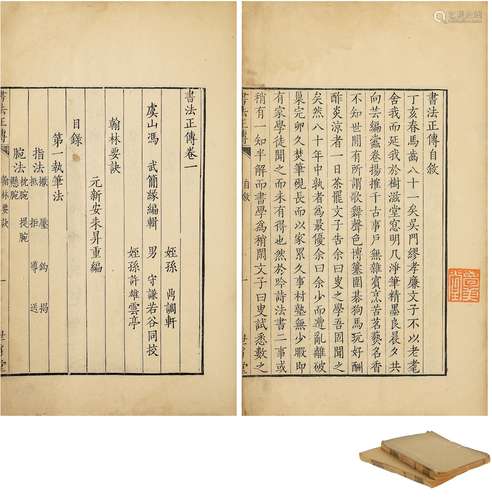 書法正傳自敘
丁亥春馬齒八十一矣吳門繆孝廉文子不以老耄
舍我而延我於樹滋堂窓明几淨筆精墨良晨夕共
向芸編蠹卷揚推千古事戶無雜賓烹苦茗爇名香
不知世間有所謂歌舞聲色博簺圍碁狗馬玩好酬
酢炎涼者一日茶罷文子告余曰叟之學吾固聞之
矣然八十年中孰者為最優余曰余少而遭亂離破
巢完卵久焚筆硯長而以家累久事村塾無少暇即
有家學徒聞之而未有得也然於吟詩法書二事或
稍有一知半解而書學為稍閑文子曰叟試悉數之
書法正傳 自敘
書法正傳卷一
姪孫 禹調軒
虞山馮 武簡緣編輯 男 守謙若谷同校
姪孫許雄雲亭
翰林要訣
元新安朱昇重編
目錄
第一執筆法
指法 擫 壓 鈎 揭
抵 拒 導 送
腕法 枕腕 提腕
懸腕
書法正傳 翰林要訣